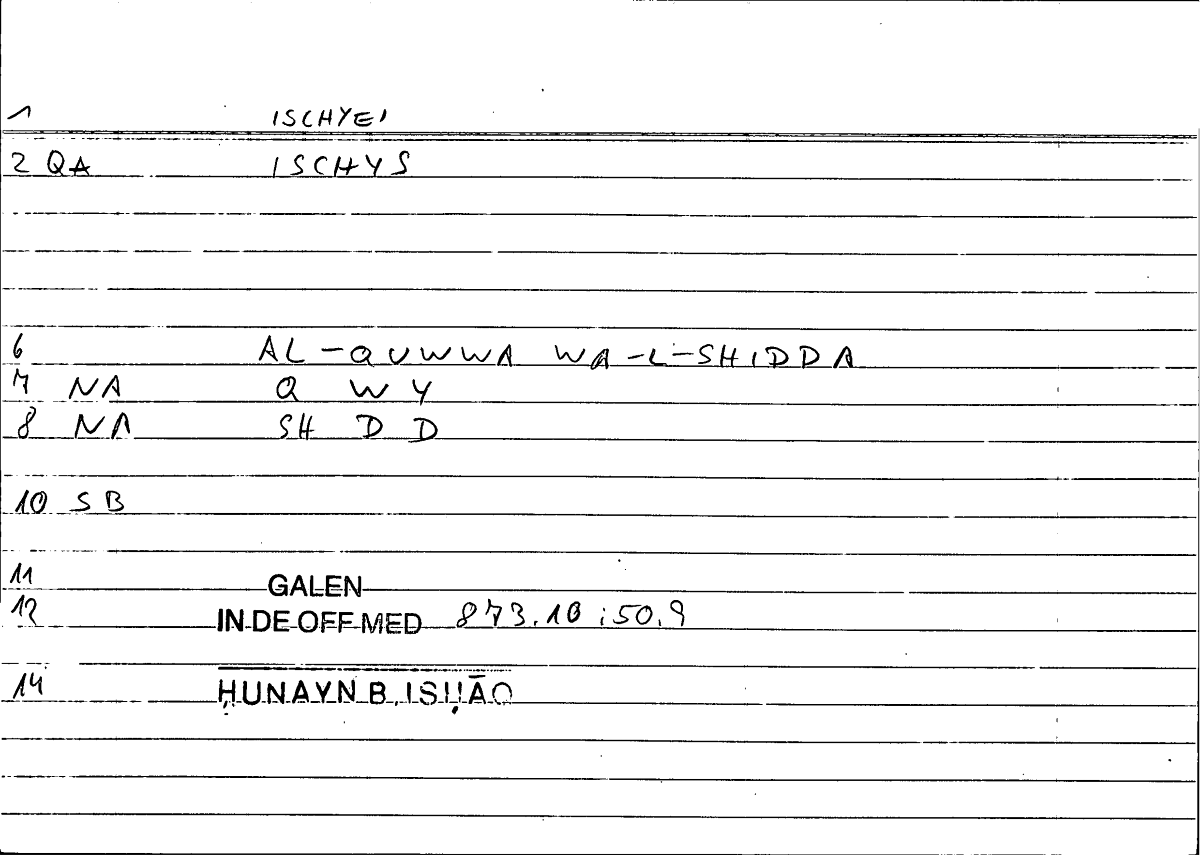 1 ISCHYEI
2 QA ISCHYS
6 AL-QUWWA WA-L-SHIDDA
7 NA Q W Y
8 NA SH D D
10 SB
11 GALEN
12 IN DE OFF MED 873.10 ; 50.9
14 ḤUNAYN B. ISḤĀQ